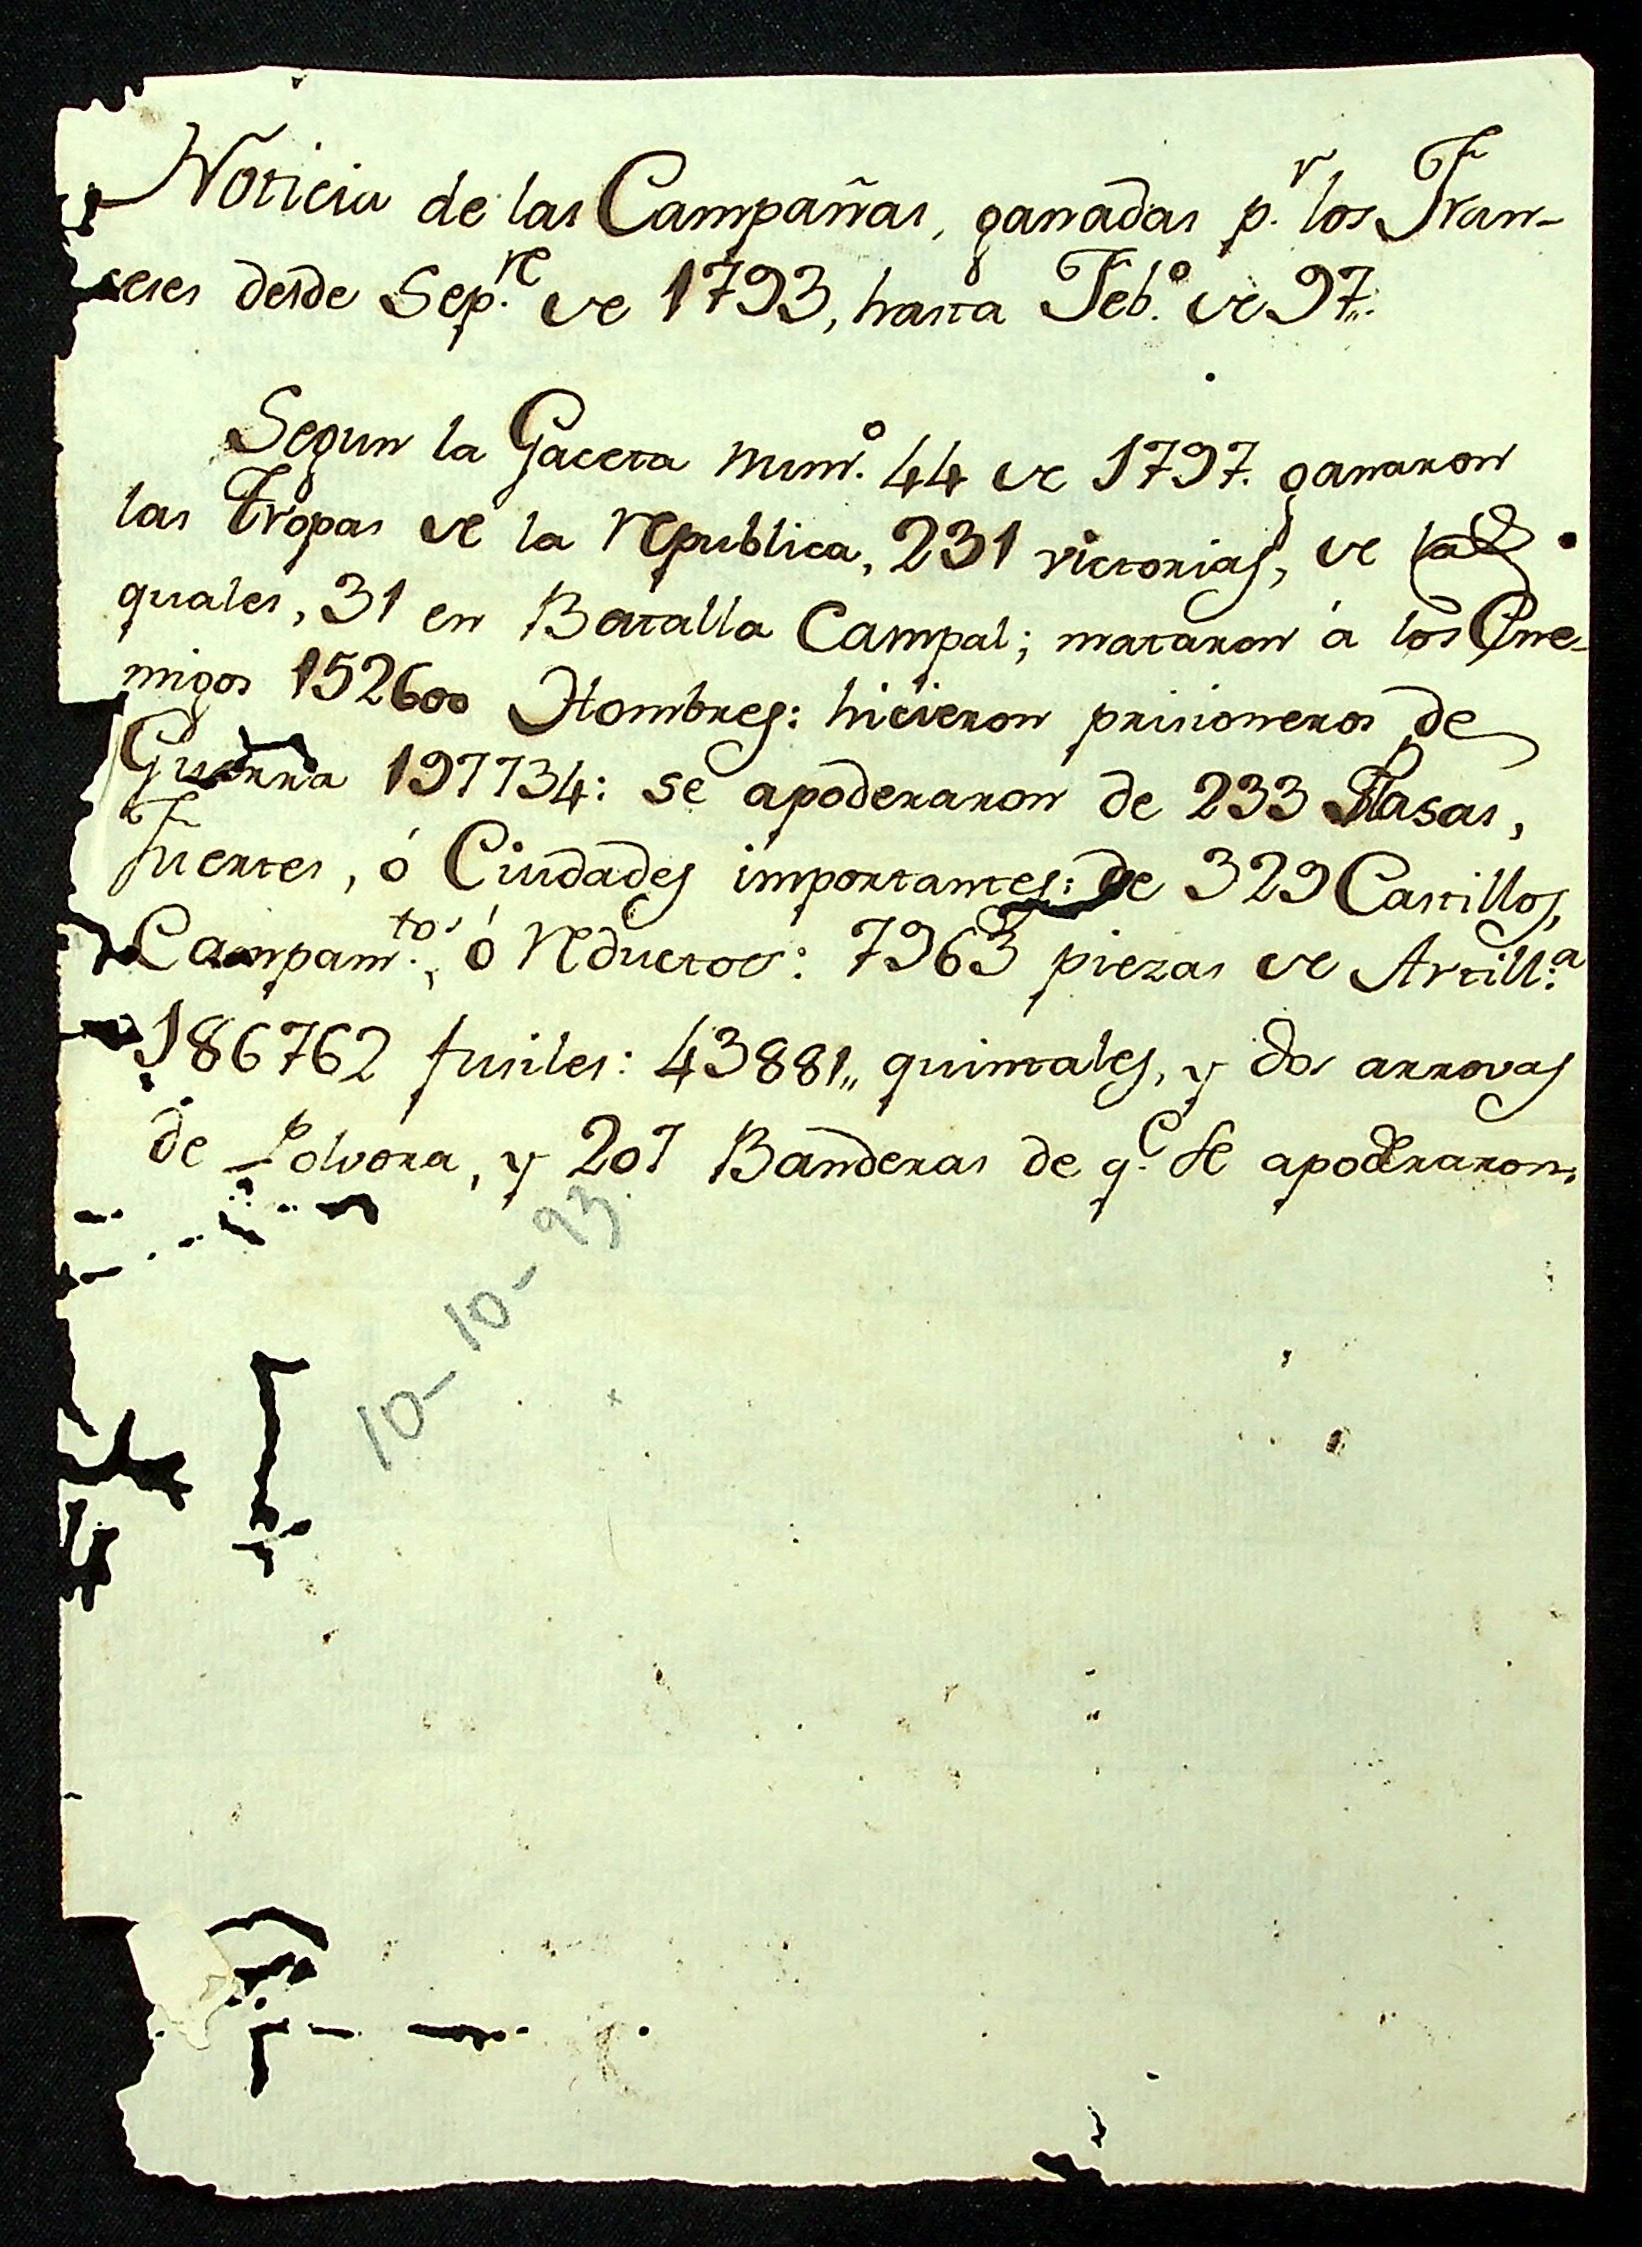 Noticia de las Campañas, ganadas p.r los Fran-
seses desde Sep.re de 1793, hasta Feb.o de 97.
Segun la Gaceta num.o 44 de 1797. ganaron
las Tropas de la republica, 231 victorias, de las
quales, 31 en Batalla Campal; mataron á los Ene-
migos 152600 Hombres: hicieron prisioneros de
Guerra 197734: se apoderaron de 233 Plasas,
Fuertes, ó Ciudades importantes: de 329 Castillos,
Campam.tos, ó reductos: 7963 piezas de Artill.a
186762 fusiles: 43881,, quintales, y dos arrovas
de Polvora, y 207 Banderas de q.e se apoderaron.
10-10-93.